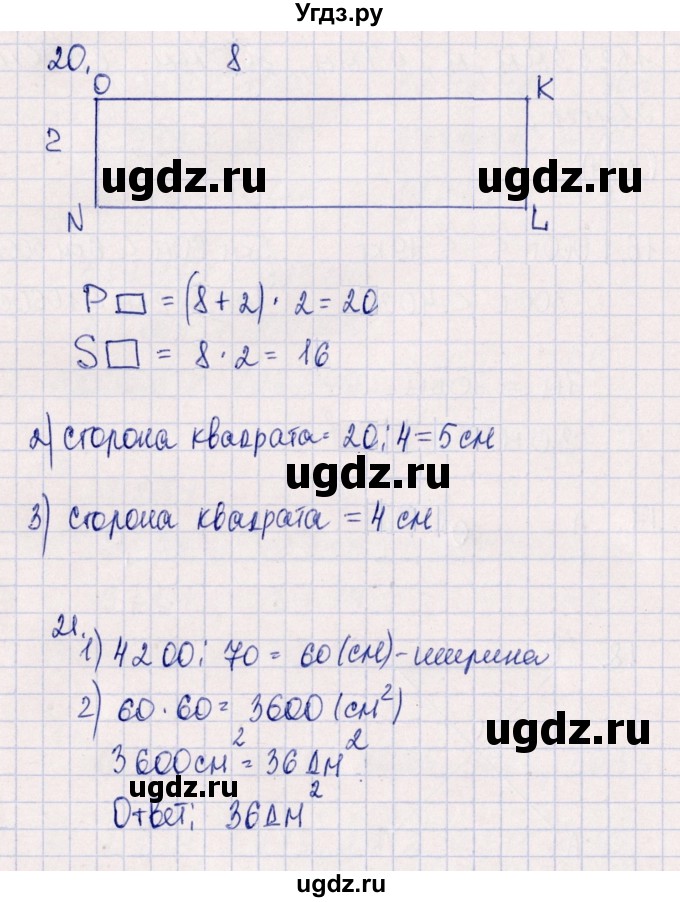 Угдз.ру
20.
8
O
K
2
ugdz.ru
ugdz.ru
N
L
P□ = (8+2)·2=20
S□ = 8·2= 16
2) сторона квадрата= 20:4=5см
ugdz.ru
3) сторона квадрата = 4 см
21.
1) 4200:70= 60(см)-ширина
2) 60·60= 3600 (см²)
ugdz.ru
3600см²=36дм²
ugdz.ru
Ответ: 36дм²
ugdz.ru